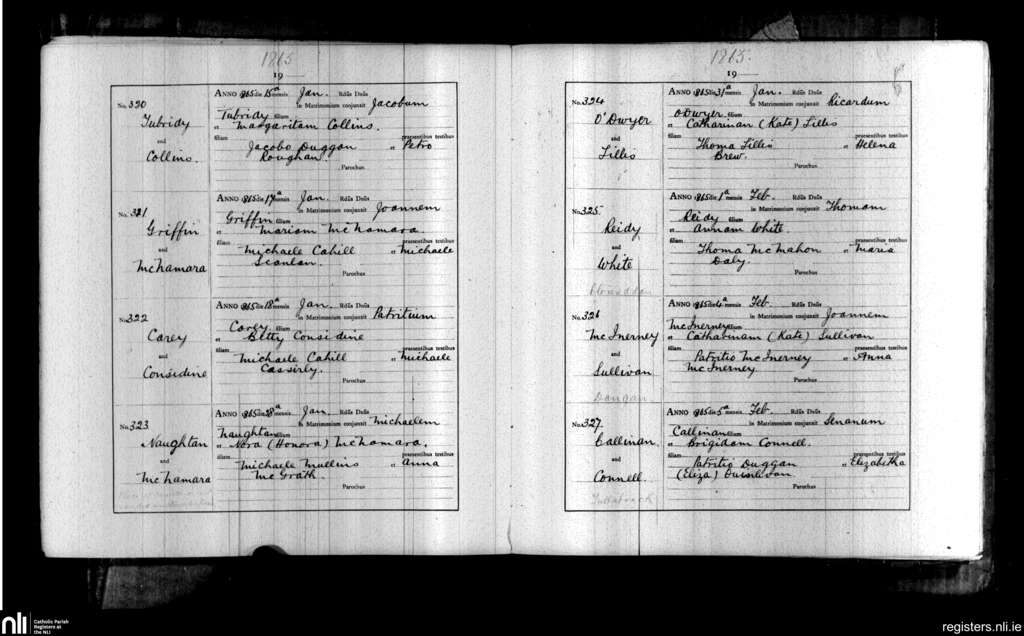 1865.
19
No. 320
Tubridy
and
Collins.
ANNO 1865 die 15a mensis Jan. Rdus Dnus
in Matrimonium conjunxit Jacobum
Tubridy filium
et Margaritam Collins.
filiam praesentibus testibus
Jacobo Duggan et Petro
Roughan.
Parochus
No. 321
Griffin
and
McNamara
ANNO 1865 die 17a mensis Jan. Rdus Dnus
in Matrimonium conjunxit Joannem
Griffin filium
et Mariam McNamara.
filiam praesentibus testibus
Michaele Cahill et Michaele
Scanlan.
Parochus
No. 322
Carey
and
Considine
ANNO 1865 die 18a mensis Jan. Rdus Dnus
in Matrimonium conjunxit Patritium
Carey filium
et Betty Considine
filiam praesentibus testibus
Michaele Cahill et Michaele
Cassirly.
Parochus
No. 323
Naughtan
and
McNamara
ANNO 1865 die 28a mensis Jan. Rdus Dnus
in Matrimonium conjunxit Michaelem
Naughtan filium
et Nora (Honora) McNamara.
filiam praesentibus testibus
Michaele Mullins et Anna
McGrath.
Parochus
1865.
19
No. 324
O'Dwyer
and
Lillis
ANNO 1865 die 31a mensis Jan. Rdus Dnus
in Matrimonium conjunxit Ricardum
O'Dwyer filium
et Catharinan (Kate) Lillis
filiam praesentibus testibus
Thoma Lillis et Helena
Brew.
Parochus
No. 325
Reidy
and
White
ANNO 1865 die 1a mensis Feb. Rdus Dnus
in Matrimonium conjunxit Thomam
Reidy filium
et Annam White.
filiam praesentibus testibus
Thoma McMahon et Maria
Daly.
Parochus
No. 326
McInerney
and
Sullivan
Dangan
ANNO 1865 die 4a mensis Feb. Rdus Dnus
in Matrimonium conjunxit Joannem
McInerney filium
et Catharinam (Kate) Sullivan
filiam praesentibus testibus
Patritio McInerney et Anna
McInerney.
Parochus
No. 327.
Callinan.
and
Connell.
ANNO 1865 die 5a mensis Feb. Rdus Dnus
in Matrimonium conjunxit Senanum
Callinan filium
et Brigidam Connell.
filiam praesentibus testibus
Patritio Duggan et Elizabetha
(Eliza) Quinlivan.
Parochus
nli
Catholic Parish
Registers at
the NLI
registers.nli.ie